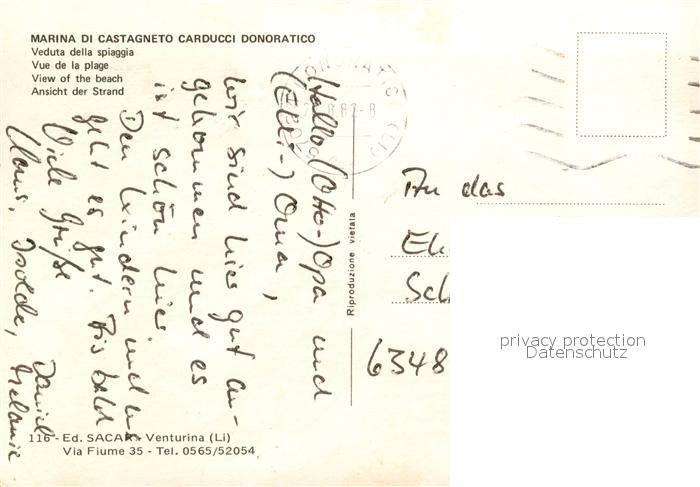 MARINA DI CASTAGNETO CARDUCCI DONORATICO
Veduta della spiaggia
Vue de la plage
View of the beach
Ansicht der Strand
Hallo (Otto-)Opa und
(Elli-) Oma,
wir sind hier gut an-
gekommen und es
ist schön hier.
Den Kindern und uns
geht es gut. Bis bald
Viele Grüße
Klaus, Isolde, Daniel
Melanie
Riproduzione vietata
An das
Eh
Sch
6348
privacy protection
Datenschutz
116 - Ed. SACAR - Venturina (Li)
Via Fiume 35 - Tel. 0565/52054